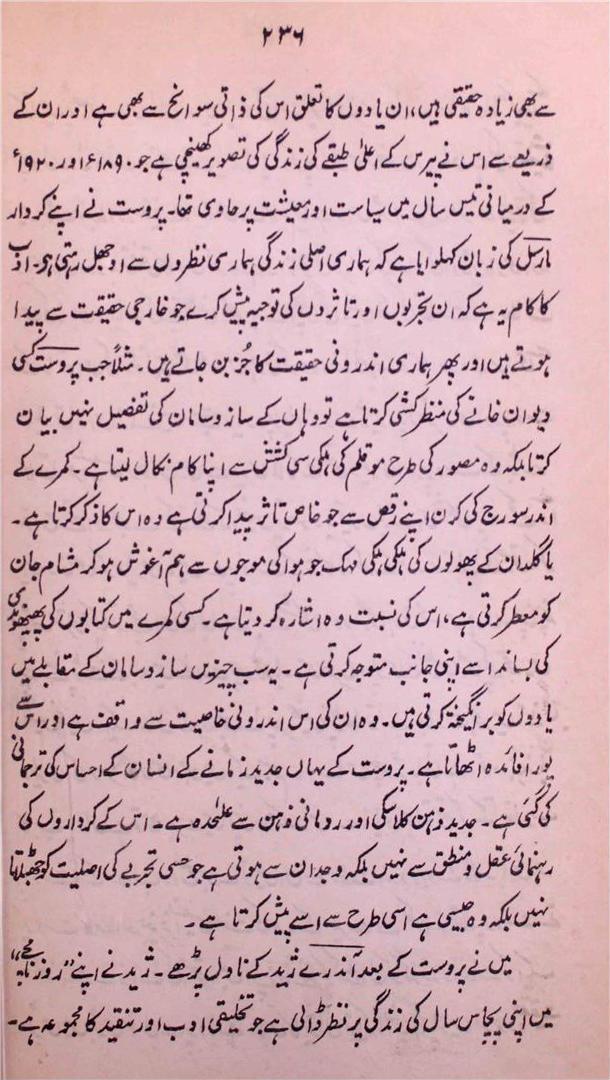 ۲۳۶
سے بھی زیادہ حقیقی ہیں، ان یادوں کا تعلق اس کی ذاتی سوانح سے بھی ہے اور ان کے
ذریعے سے اس نے پیرس کے اعلیٰ طبقے کی زندگی کی تصویر کھینچی ہے جو ۱۸۹۰ء اور ۱۹۲۰ء
کے درمیانی تیس سال میں سیاست اور معیشت پر حاوی تھا۔ پروست نے اپنے کردار
مارسل کی زبان کہلوایا ہے کہ ہماری اصلی زندگی ہماری نظروں سے اوجھل رہتی ہے۔ ادب
کا کام یہ ہے کہ ان تجربوں اور تاثروں کی توجیہ پیش کرے جو خارجی حقیقت سے پیدا
ہوتے ہیں اور پھر ہماری اندرونی حقیقت کا جُز بن جاتے ہیں۔ مثلاً جب پروست کسی
دیوان خانے کی منظر کشی کرتا ہے تو وہاں کے ساز و سامان کی تفصیل نہیں بیان
کرتا بلکہ وہ مصور کی طرح موقلم کی ہلکی سی کشش سے اپنا کام نکال لیتا ہے۔ کمرے کے
اندر سورج کی کرن اپنے رقص سے جو خاص تاثر پیدا کرتی ہے وہ اس کا ذکر کرتا ہے۔
یا گلدان کے پھولوں کی ہلکی ہلکی مہک جو ہوا کی موجوں سے ہم آغوش ہو کر مشام جان
کو معطر کرتی ہے، اس کی نسبت وہ اشارہ کر دیتا ہے۔ کسی کمرے میں کتابوں کی پھپھوندی
کی بساند اسے اپنی جانب متوجہ کرتی ہے۔ یہ سب چیزیں ساز و سامان کے مقابلے میں
یادوں کو برانگیختہ کرتی ہیں۔ وہ ان کی اس اندرونی خاصیت سے واقف ہے اور اس سے
پورا فائدہ اٹھاتا ہے۔ پروست کے یہاں جدید زمانے کے انسان کے احساس کی ترجمانی
کی گئی ہے۔ جدید ذہن کلاسکی اور رومانی ذہن سے علٰحدہ ہے۔ اس کے کرداروں کی
رہنمائی عقل و منطق سے نہیں بلکہ وجدان سے ہوتی ہے جو حسی تجربے کی اصلیت کو جھٹلاتا
نہیں بلکہ وہ جیسی ہے اسی طرح سے اسے پیش کرتا ہے۔
میں نے پروست کے بعد آندرے ژید کے ناول پڑھے۔ ژید نے اپنے "روزنامچے"
میں اپنی پچاس سال کی زندگی پر نظر ڈالی ہے جو تخلیقی ادب اور تنقید کا مجموعہ ہے۔